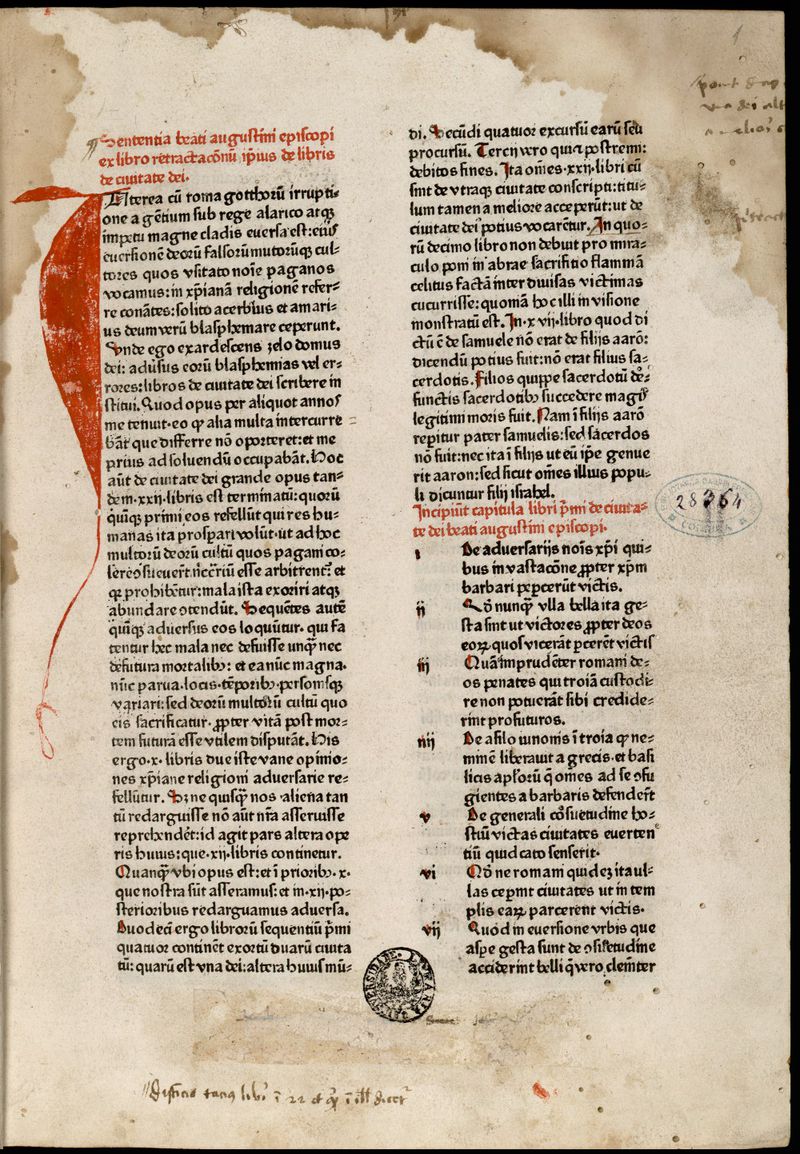 Sententia beati augustini episcopi
ex libro retractaconũ ipius de libris
de ciuitate dei.
Interea cũ roma gotthorũ irrupti⸗
one agẽtium sub rege alarico atqȝ
impetu magne cladis euersa est: eiꝰ
euersionẽ deorũ falsorũ mutorũqȝ cul⸗
tores quos vsitato noīe paganos
vocamus: in xp̄ianā religionẽ refer⸗
re conātes: solito acerbius et amari⸗
us deum verũ blasphemare ceperunt.
Unde ego exardescens zelo domus
dei: adūsus eorũ blasphemias vel er⸗
rores: libros de ciuitate dei scribere in
stitui. Quod opus per aliquot annos
me tenuit· eo ꝙ alia multa intercurre
bāt que differre nõ oporteret: et me
prius ad soluendũ occupabāt. Hoc
aũt de ciuitate dei grande opus tan⸗
dem ·xxii· libris est terminatũ: quorũ
quīqȝ primi eos refellũt qui res hu⸗
manas ita prosꝑari volũt· ut ad hoc
multorũ deorũ cultũ quos pagani co⸗
lere ↄsueuer̄t· nccr̄iũ esse arbitrent᷑: et
qꝛ prohibent᷑: mala ista exoriri atqȝ
abundare ↄtendũt. Sequẽtes autẽ
quīqȝ aduersus eos loquũtur· qui fa
tentur hec mala nec defuisse unqȝ̄ nec
defutura mortalibꝰ: et ea nũc magna·
nũc parua· locis· tẽporibꝰ· personisqȝ
variari: sed deorũ multorũ cultũ quo
eis sacrificatur· ꝓpter vitā post mor⸗
tem futurā esse vtilem disputāt. His
ergo ·x· libris due iste vane opinio⸗
nes xp̄iane religioni aduersarie re⸗
fellũtur. Sȝ ne quisqȝ̄ nos aliena tan
tũ redarguisse nõ aũt nr̄a asseruisse
reprehendẽt: id agit pars altera ope
ris huius: que ·xij· libris continetur.
Quanqȝ̄ vbi opus est: et ī prioribꝰ ·x·
que nostra sũt asseramus: et in ·xij· po⸗
sterioribus redarguamus aduersa.
Duodecī ergo librorũ sequentiũ pīmi
quatuor continẽt exortũ duarũ ciuita
tũ: quarũ est vna dei: altera huius mũ⸗
di. Secũdi quatuor excursũ earũ seu
procursũ. Tercij vero qui et postremi:
debitos fines. Ita oīmes ·xxij· libri cũ
sint de vtraqȝ ciuitate conscripti: titu⸗
lum tamen a meliore acceperũt: ut de
ciuitate dei potius vocarẽtur. In quo⸗
rũ decimo libro non debuit pro mira⸗
culo poni in abrae sacrifitio flammā
celitus factā inter diuisas victimas
cucurrisse: quoniā hoc illi in visione
monstratũ est. In ·xvij· libro quod di
ctũ ē de samuele nõ erat de filijs aarõ:
dicendũ potius fuit: nõ erat filius sa⸗
cerdotis. Filios quippe sacerdotũ de⸗
functis sacerdotibꝰ succedere magis
legitimi moris fuit. Nam ī filijs aarõ
repitur pater samuelis: sed sacerdos
nõ fuit: nec ita ī filijs ut eũ ip̄e genue
rit aaron: sed sicut om̄es illius popu⸗
li dicuntur filij israhel.
Incipiũt capitula libri pīmi de ciuita⸗
te dei beati augustini episcopi·
i De aduersarijs noīs xp̄i qui⸗
bus in vastacõne ꝓpter xp̄m
barbari peꝑcerũt victis.
ii Qð nunqȝ̄ vlla bella ita ge⸗
sta sint ut victores ꝓpter deos
eoꝝ quos vicerāt ꝑcerẽt victis
iii Quā imprudẽter romani de⸗
os penates qui troiā custodi⸗
re non potuerāt sibi credide⸗
rint profuturos.
iiii De asilo iunonis ī troia ꝙ ne⸗
minẽ liberauit a grecis· et basi
licis apl'orũ q̄ omẽs ad se ↄfu
gientes a barbaris defender̄t
v De generali cõsuetudine ho⸗
stiũ victas ciuitates euerten
tiũ quid cato senserit·
vi Qð ne romani quidẽ ita ul⸗
las cepint ciuitates ut in tem
plis eaꝝ parcerent victis·
vii Quod in euersione vrbis que
asꝑe gesta sunt de ↄsuetudine
acciderint belli q̄ vero clemẽter
28364